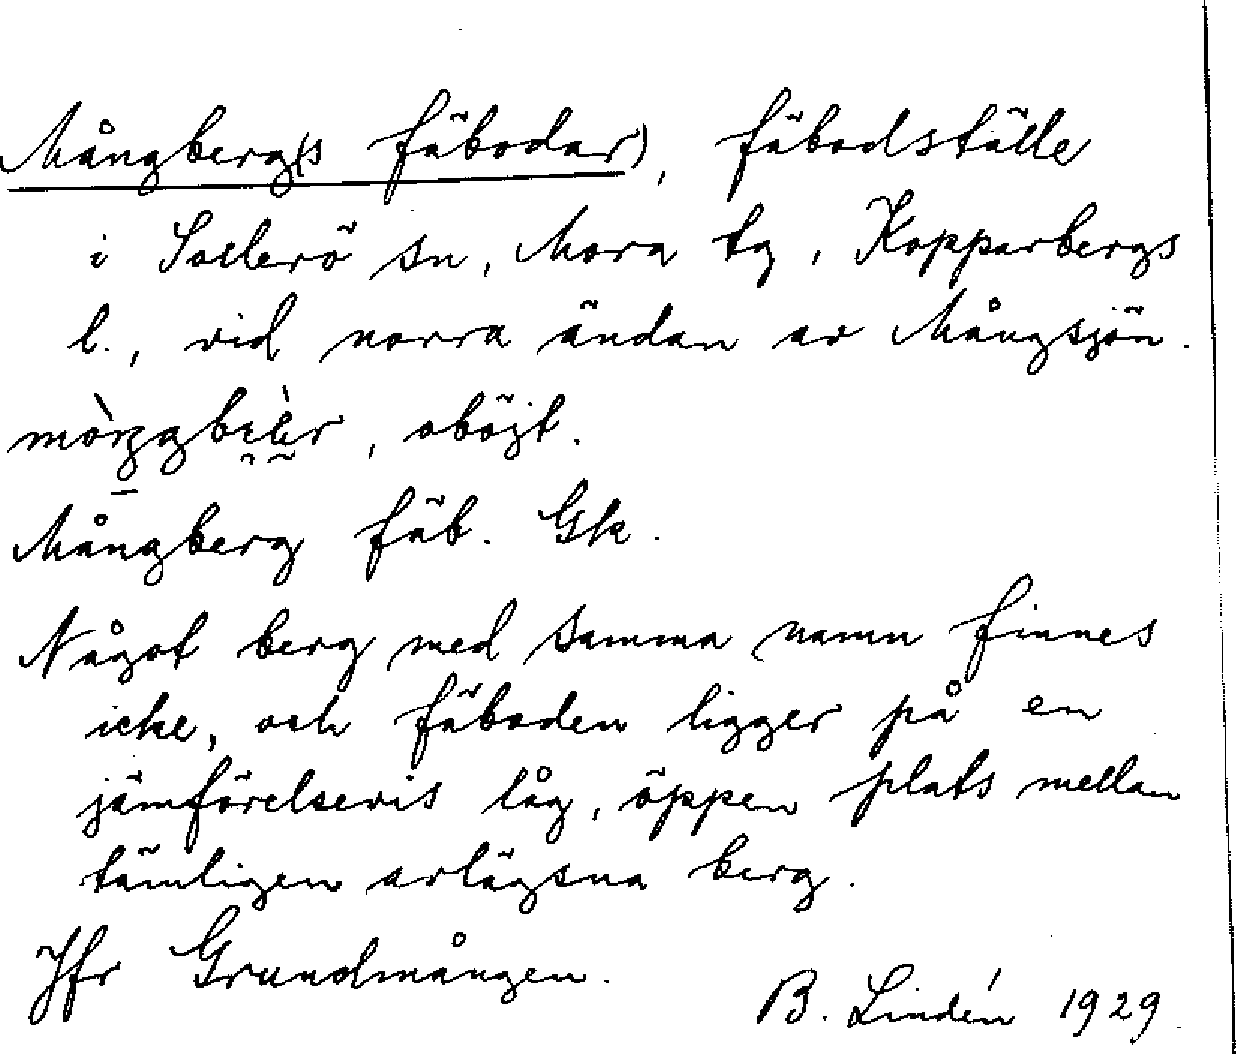 Mångberg(s fäbodar), fäbodställe
i Sollerö sn, Mora tg, Kopparbergs
l., vid norra ändan av Mångsjön.
oböjt.
Mångberg fäb. Gk.
Något berg med samma namn finnes
icke, och fäboden ligger på en
jämförelsevis låg, öppen plats mellan
tämligen avlägsna berg.
Jfr Grundmången.
B. Lindén 1929